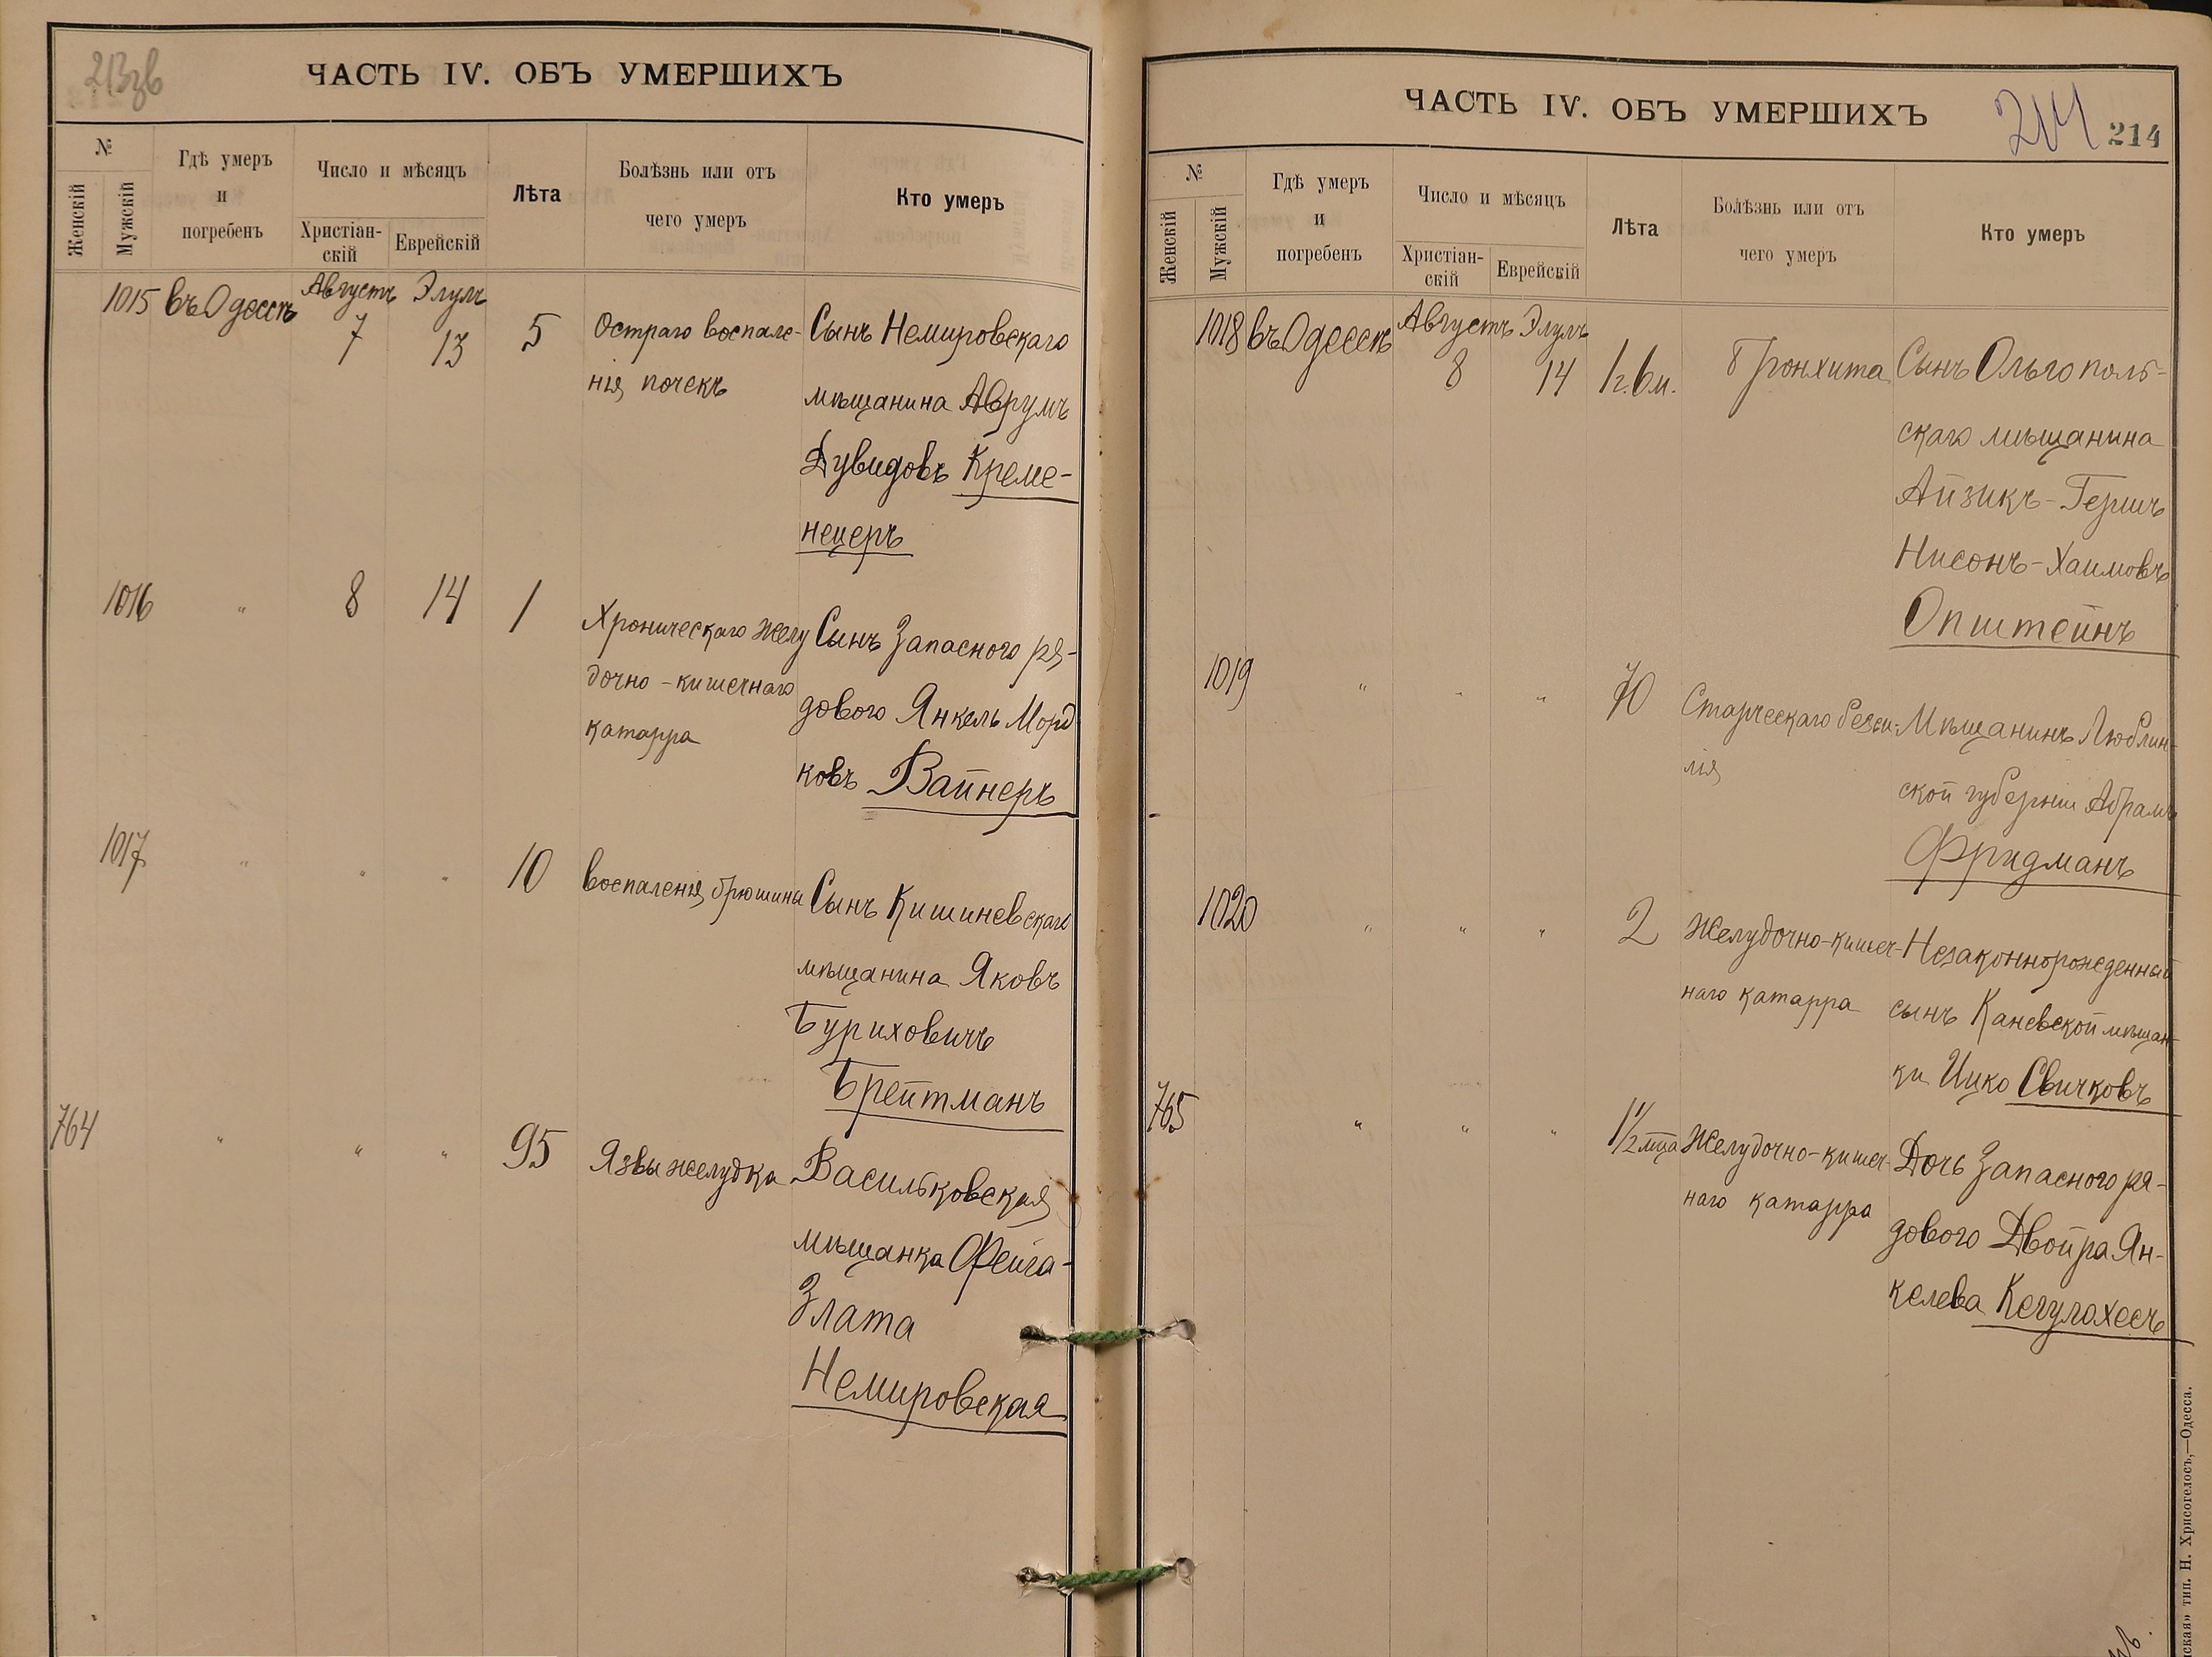 213зв
ЧАСТЬ IV. ОБЪ УМЕРШИХЪ
№
Женскій
Мужскій
Гдѣ умеръ
и
погребенъ
Число и мѣсяцъ
Христіан-
скій
Еврейскій
Лѣта
Болѣзнь или отъ
чего умеръ
Кто умеръ
1015 въ Одессѣ Августъ Элулъ
7 13 5 Остраго воспале- Сынъ Немировскаго
нія почекъ мѣщанина Аврумъ
Дувидовъ Креме-
нецеръ
1016 " 8 14 1 Хроническаго желу Сынъ Запасного ря-
дочно-кишечнаго дового Янкель Морд
катарра ковъ Вайнеръ
1017 " " " 10 воспаленія брюшины Сынъ Кишиневскаго
мѣщанина Яковъ
Буриховичъ
Брейтманъ
764 " " " 95 Язвы желудка Васильковская
мѣщанка Фейга-
Злата
Немировская
ЧАСТЬ IV. ОБЪ УМЕРШИХЪ
214
214
№
Женскій
Мужскій
Гдѣ умеръ
и
погребенъ
Число и мѣсяцъ
Христіан-
скій
Еврейскій
Лѣта
Болѣзнь или отъ
чего умеръ
Кто умеръ
1018 въ Одессѣ Августъ Элулъ
8 14 1г. 6м. Бронхита Сынъ Ольгополь-
скаго мѣщанина
Айзикъ-Гершъ
Нисонъ-Хаимовъ
Општейнъ
1019 " " " 70 Старческаго безси- Мѣщанинъ Люблин-
лія ской губерніи Абрамъ
Фридманъ
1020 " " " 2 Желудочно-кишеч- Незаконнорожденный
наго катарра сынъ Каневской мѣщан-
ки Ицко Свичковъ
765 " " " 1½ мца Желудочно-кишеч- Дочь Запасного ря-
наго катарра дового Двойра Ян-
келева Кегулахесъ
ская» тип. Н. Хрисогелосъ,—Одесса.